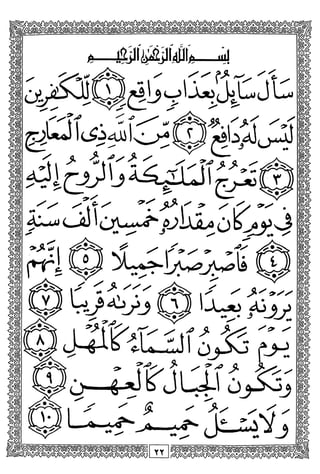 بِسْمِ اللَّهِ الرَّحْمَٰنِ الرَّحِيمِ
سَأَلَ سَآئِلٌۢ بِعَذَابٍ وَاقِعٍ ١ لِّلْكَٰفِرِينَ
لَيْسَ لَهُۥ دَافِعٌ ٢ مِّنَ ٱللَّهِ ذِى ٱلْمَعَارِجِ
٣ تَعْرُجُ ٱلْمَلَٰٓئِكَةُ وَٱلرُّوحُ إِلَيْهِ
فِى يَوْمٍ كَانَ مِقْدَارُهُۥ خَمْسِينَ أَلْفَ سَنَةٍ
٤ فَٱصْبِرْ صَبْرًا جَمِيلًا ٥ إِنَّهُمْ
يَرَوْنَهُۥ بَعِيدًا ٦ وَنَرَىٰهُ قَرِيبًا ٧
يَوْمَ تَكُونُ ٱلسَّمَآءُ كَٱلْمُهْلِ ٨
وَتَكُونُ ٱلْجِبَالُ كَٱلْعِهْنِ ٩
وَلَا يَسْـَٔلُ حَمِيمٌ حَمِيمًا ١٠
٢٢